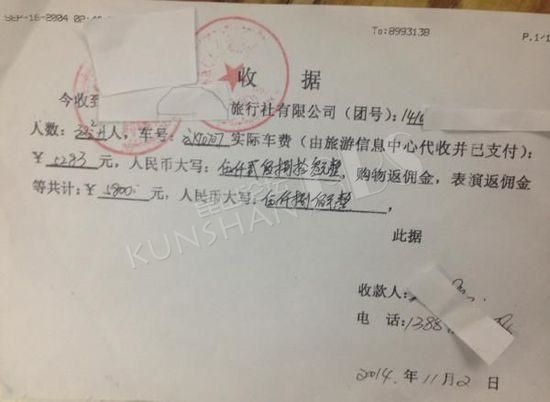 SEP-16-2004
To:8993138
P.1/1
收 据
今收到 旅行社有限公司（团号：1416
人数： 人，车号： 实际车费（由旅游信息中心代收并已支付）：
￥ 5283 元，人民币大写：伍仟贰佰捌拾叁整，购物返佣金，表演返佣金
等共计：￥ 5800 元，人民币大写：伍仟捌佰元整，
此据
收款人：
电 话：1388
2014.年 11 月 2 日
KUNSHAN